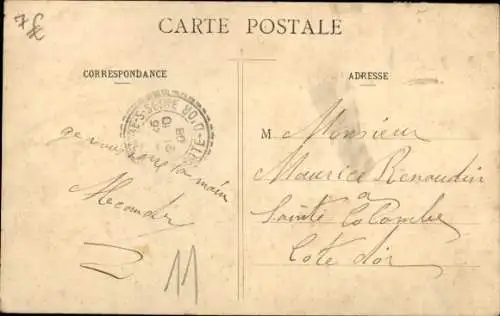 7€
CARTE POSTALE
CORRESPONDANCE
ADRESSE
S-SEINE
CÔTE-D'OR
la main
Alexandre
11
M Monsieur
Maurice Renaudin
a
Sainte Colombe
Cote d'or